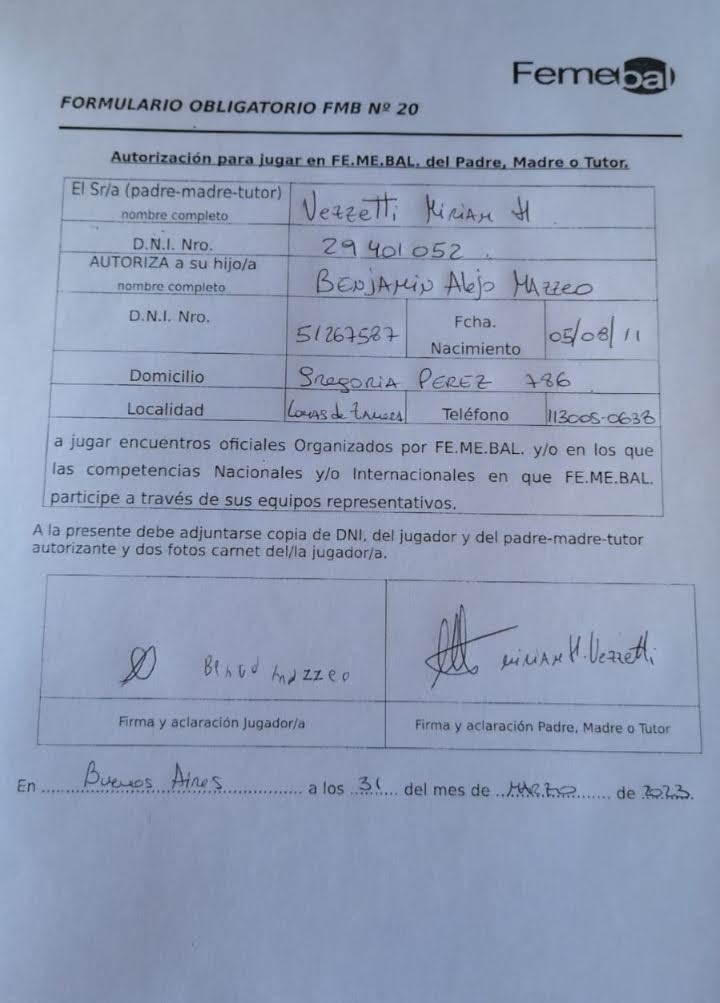 Femebal
FORMULARIO OBLIGATORIO FMB Nº 20
Autorización para jugar en FE.ME.BAL. del Padre, Madre o Tutor.
El Sr/a (padre-madre-tutor) nombre completo Vezzetti Miriam H
D.N.I. Nro. 29401052
AUTORIZA a su hijo/a nombre completo BENJAMIN Alejo MAZZEO
D.N.I. Nro. 51267587 Fcha. Nacimiento 05/08/11
Domicilio Gregoria PEREZ 786
Localidad Lomas de Zamora Teléfono 113005-0638
a jugar encuentros oficiales Organizados por FE.ME.BAL. y/o en los que
las competencias Nacionales y/o Internacionales en que FE.ME.BAL.
participe a través de sus equipos representativos.
A la presente debe adjuntarse copia de DNI, del jugador y del padre-madre-tutor
autorizante y dos fotos carnet del/la jugador/a.
mazzeo MIRIAM H. Vezzetti
Firma y aclaración Jugador/a Firma y aclaración Padre, Madre o Tutor
En Buenos Aires a los 31 del mes de MARZO de 2023.